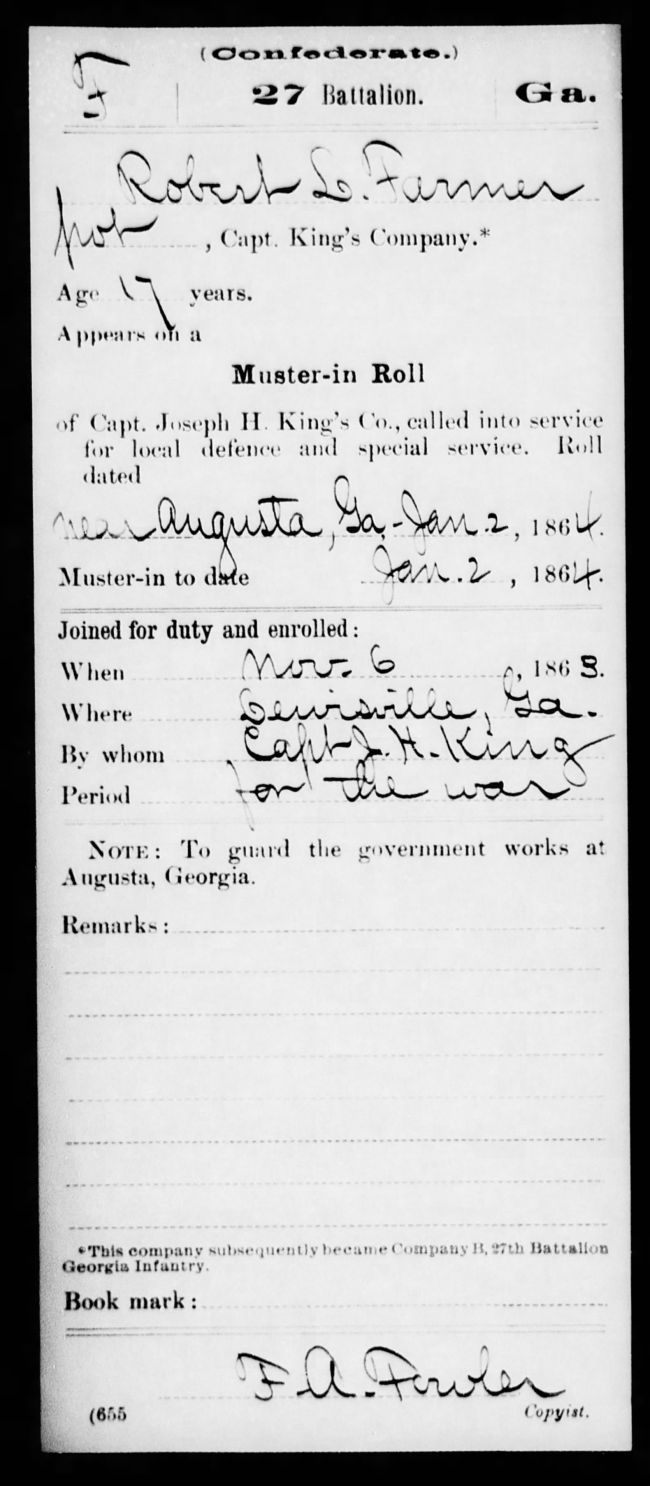 (Confederate.)
F 27 Battalion. Ga.
Robert L. Farmer
pvt, Capt. King's Company.*
Age 17 years.
Appears on a
Muster-in Roll
of Capt. Joseph H. King's Co., called into service
for local defence and special service. Roll
dated
near Augusta, Ga.-Jan. 2, 1864.
Muster-in to date Jan. 2, 1864.
Joined for duty and enrolled:
When Nov. 6, 1863.
Where Lewisville, Ga.
By whom Capt J. H. King
Period for the war
NOTE: To guard the government works at
Augusta, Georgia.
Remarks:
*This company subsequently became Company B, 27th Battalion
Georgia Infantry.
Book mark:
F. A. Fowler
(655 Copyist.